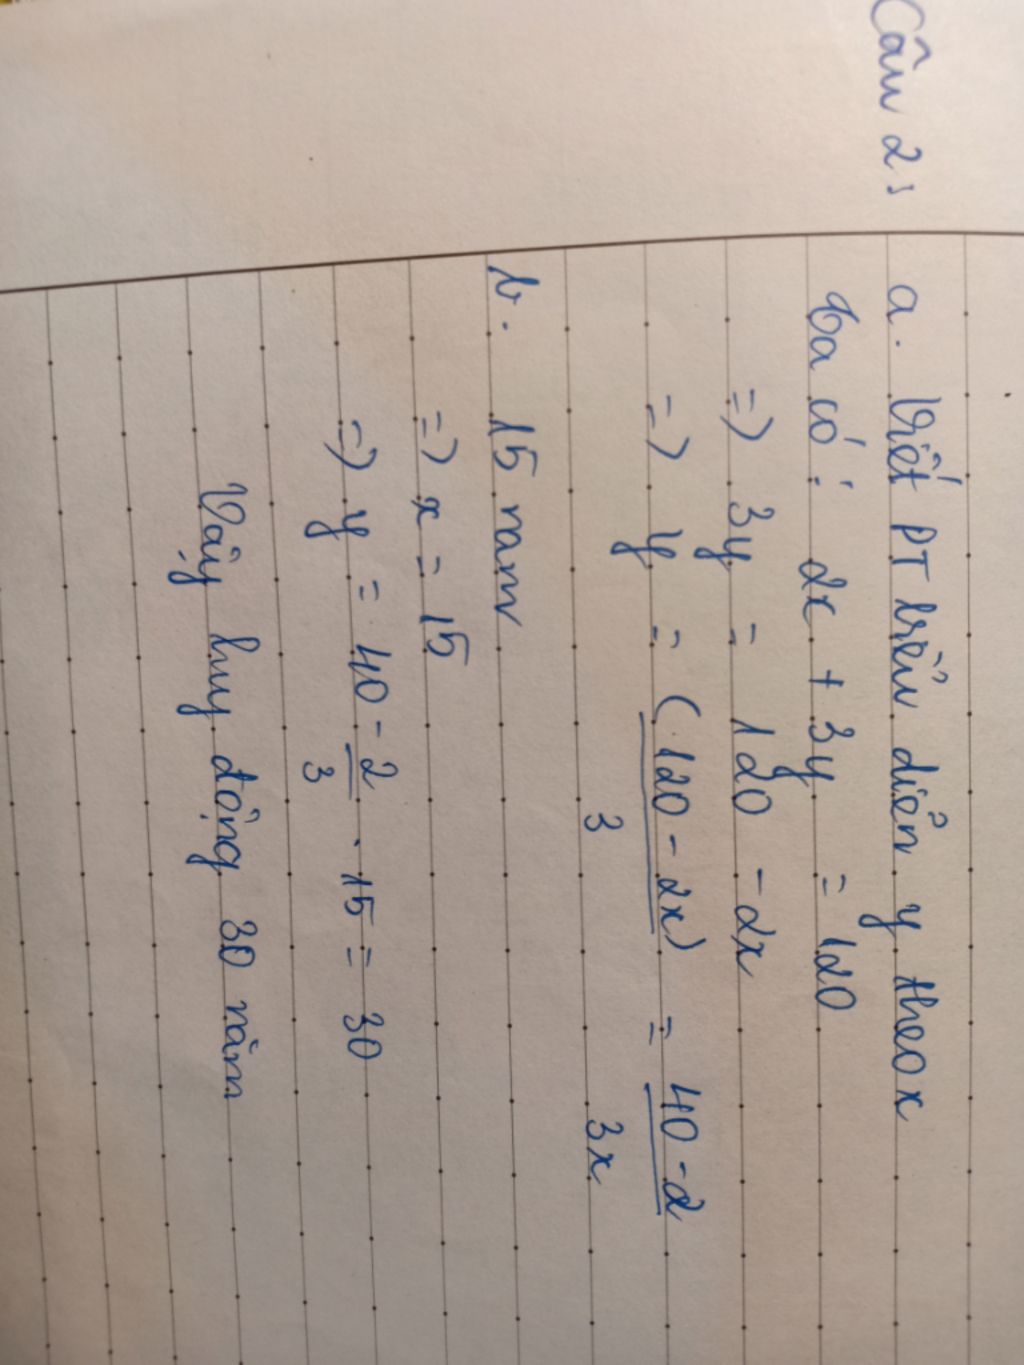 Câu 2:
a. Viết PT biểu diễn y theo x
Ta có: 2x + 3y = 120
=) 3y = 120 - 2x
=) y = (120 - 2x) / 3 = 40 - 2 / 3x
b. 15 nam
=) x = 15
=) y = 40 - 2/3 . 15 = 30
Vậy huy động 30 năm